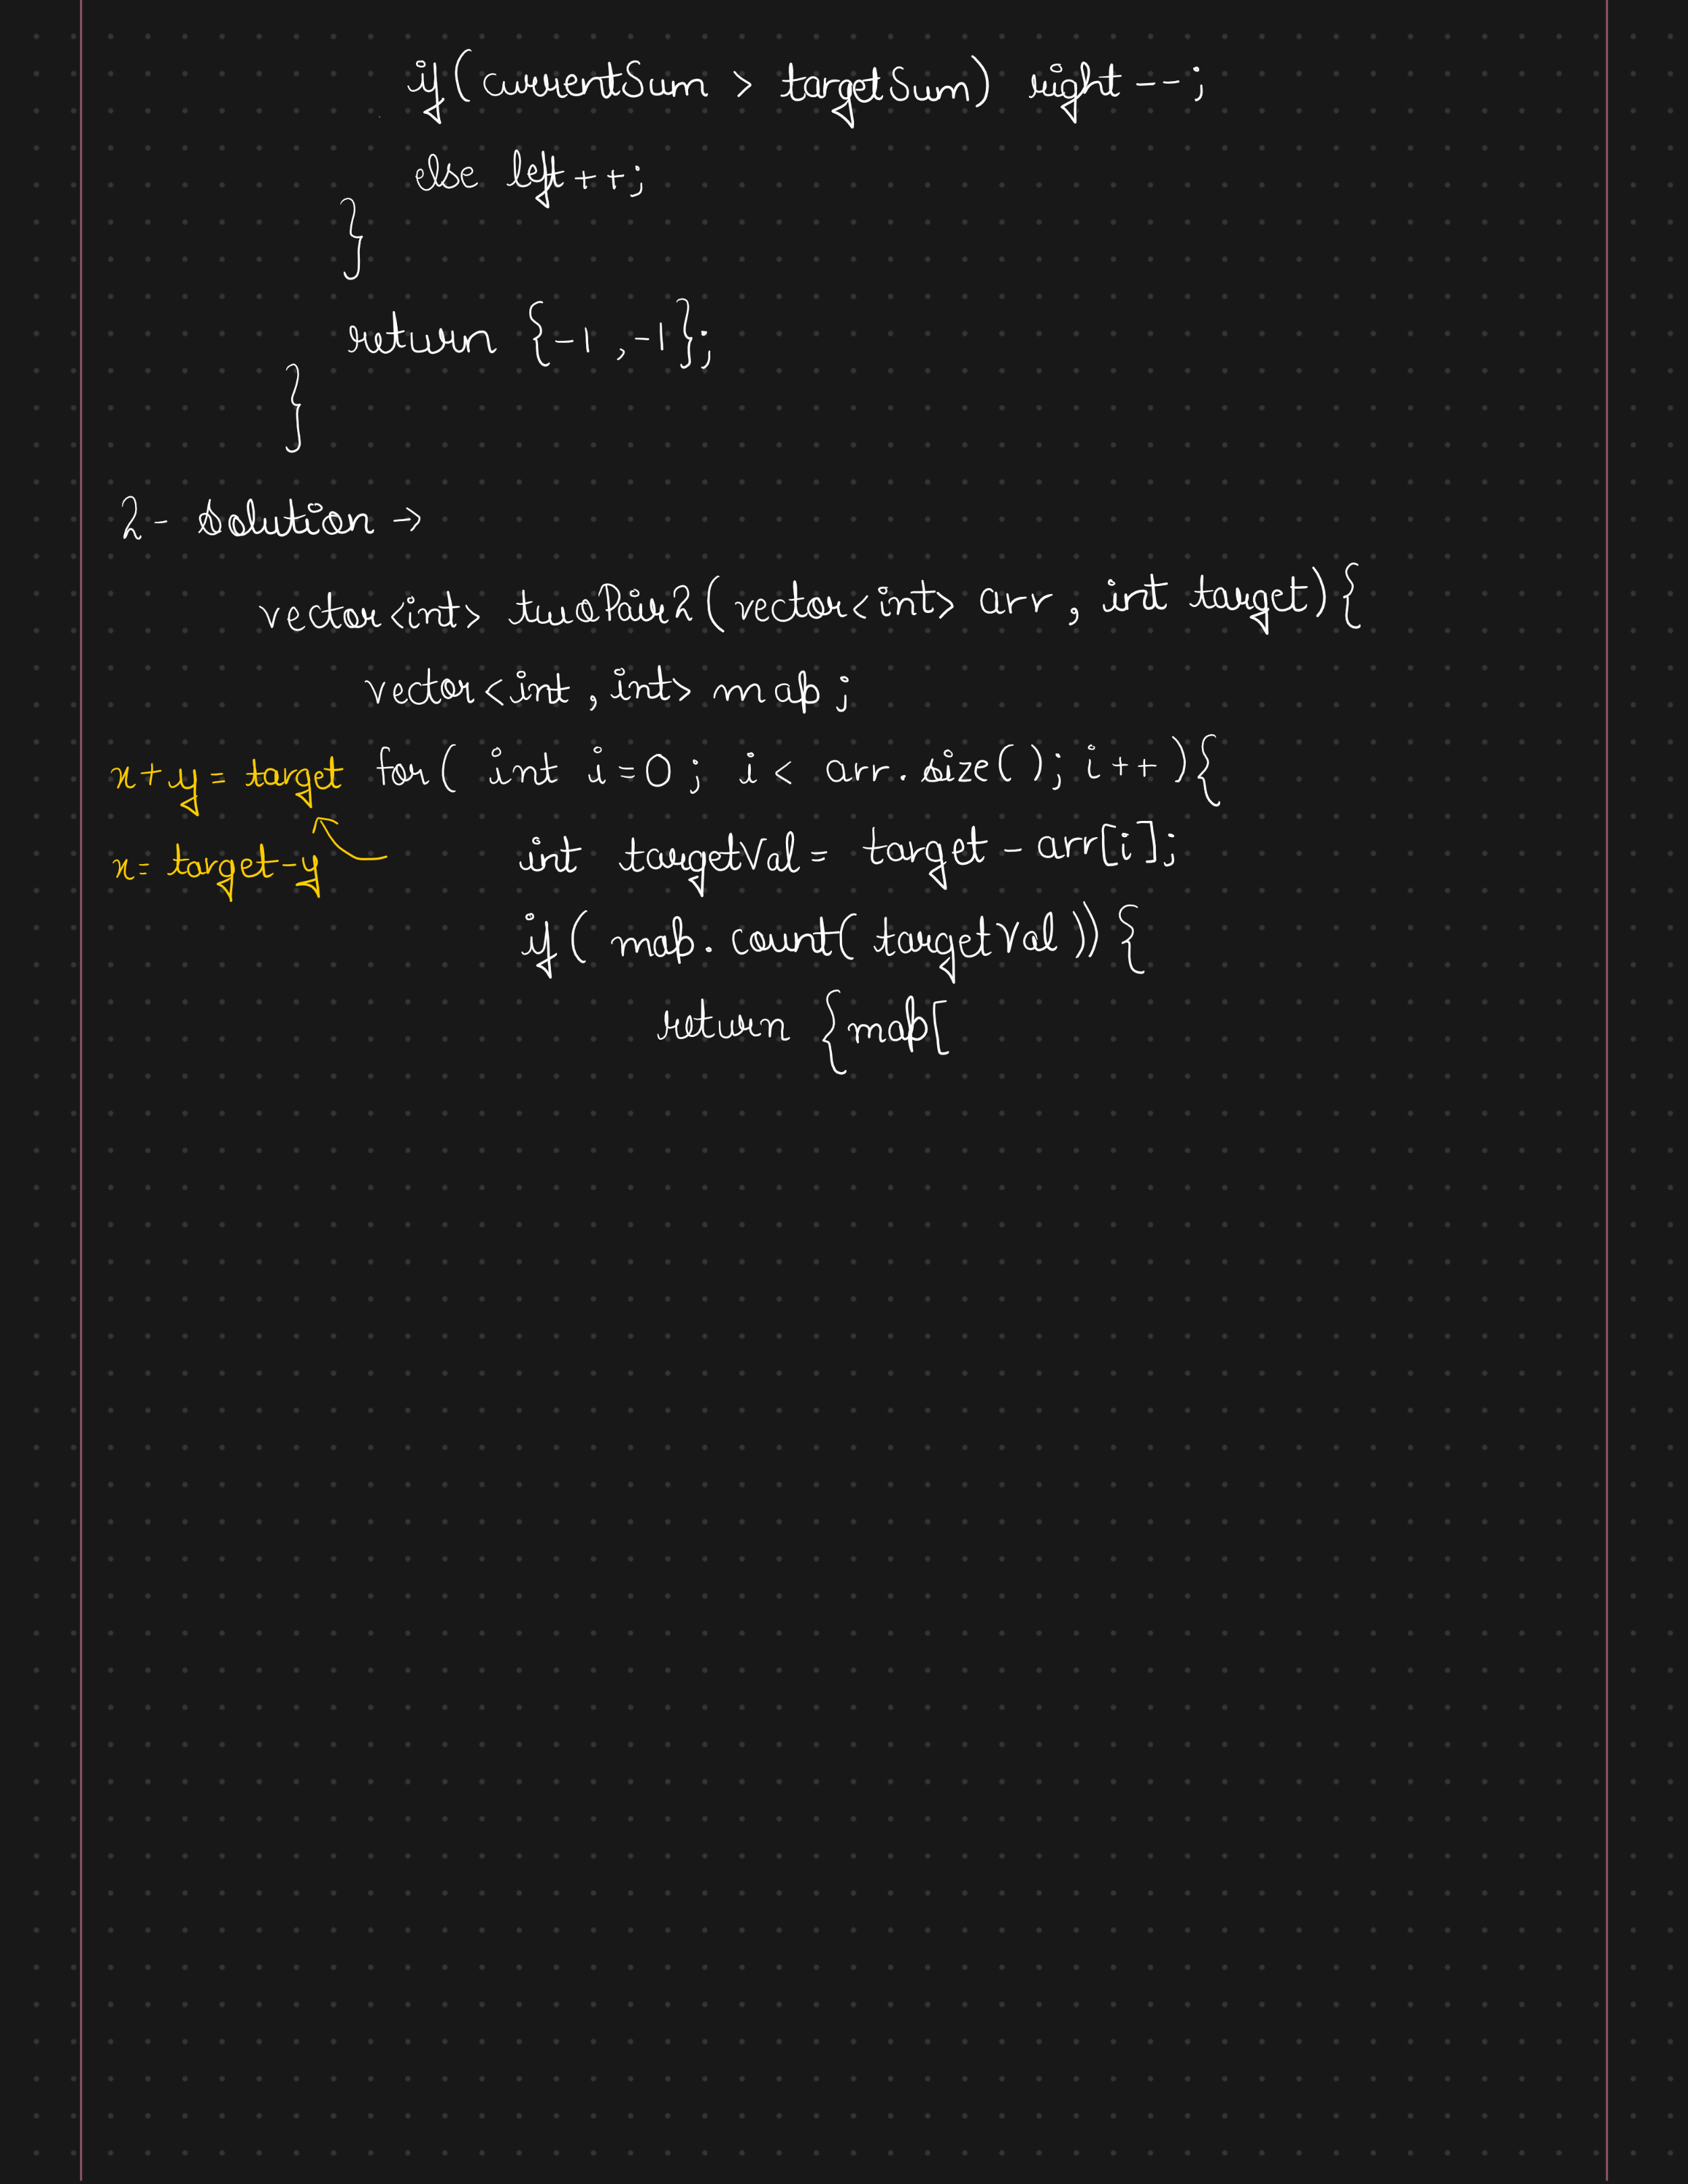 if(currentSum > targetSum) right--;
else left++;
}
return {-1,-1};
}
2- Solution →
vector<int> twoPair2(vector<int> arr, int target){
vector<int, int> map;
x+y = target for( int i=0; i < arr.size(); i++){
x= target-y int targetVal = target - arr[i];
if( map.count( targetVal )){
return {map[